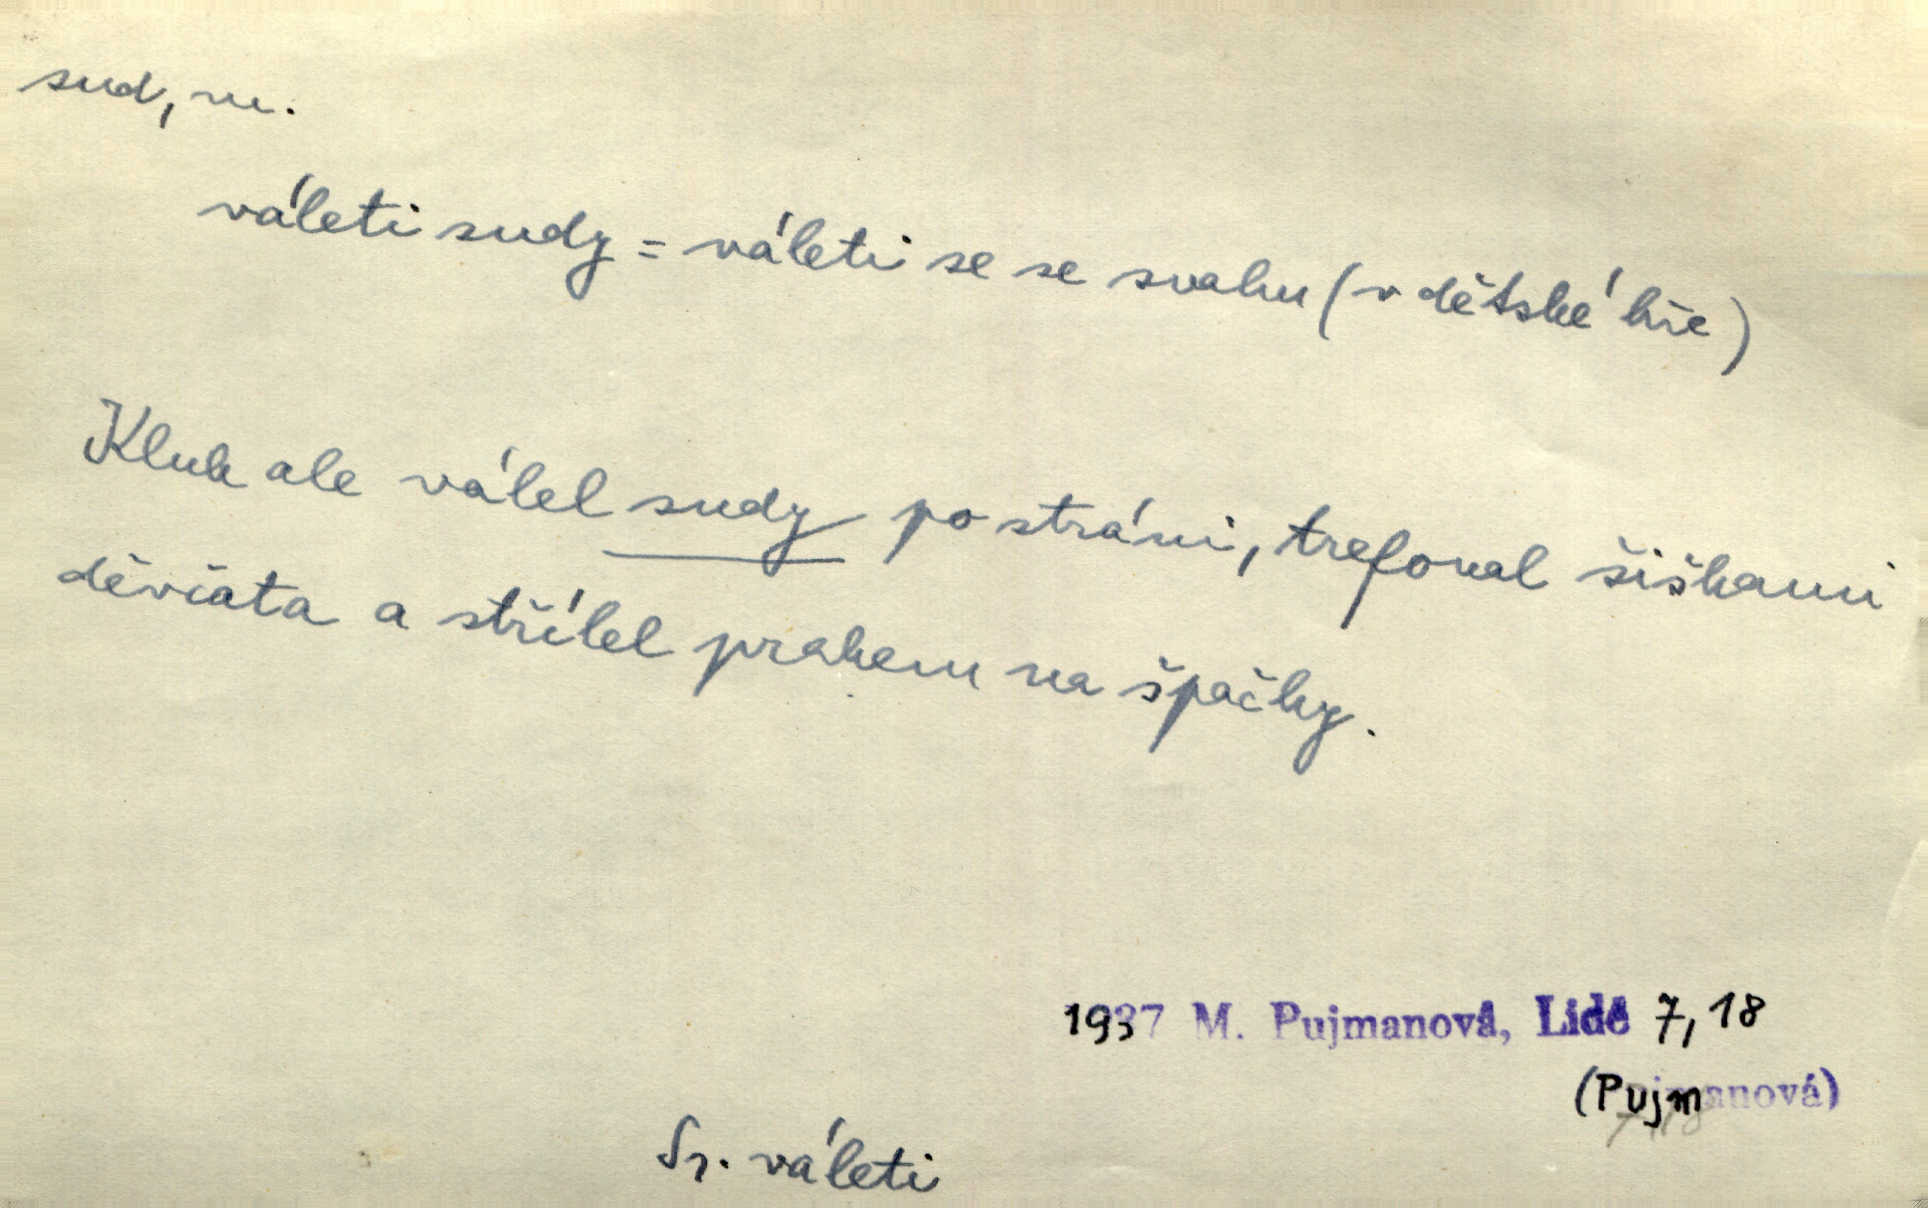 sud, m.
váleti sudy = váleti se se svahu (v dětské hře)
Kluk ale válel sudy po stráni, trefoval šiškami
děvčata a střílel prakem na špačky.
1937 M. Pujmanová, Lidé 7, 18
(Pujmanová)
7,18
Sr. váleti